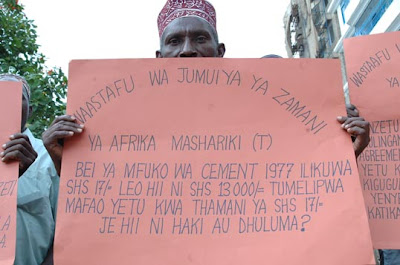 WAASTAFU WA JUMUIYA YA ZAMANI
YA AFRIKA MASHARIKI (T)
BEI YA MFUKO WA CEMENT 1977 ILIKUWA
SHS 17/- LEO HII NI SHS 13000/- TUMELIPWA
MAFAO YETU KWA THAMANI YA SHS 17/-
JE HII NI HAKI AU DHULUMA?
WASTAAFU
YETU K
KATIKA